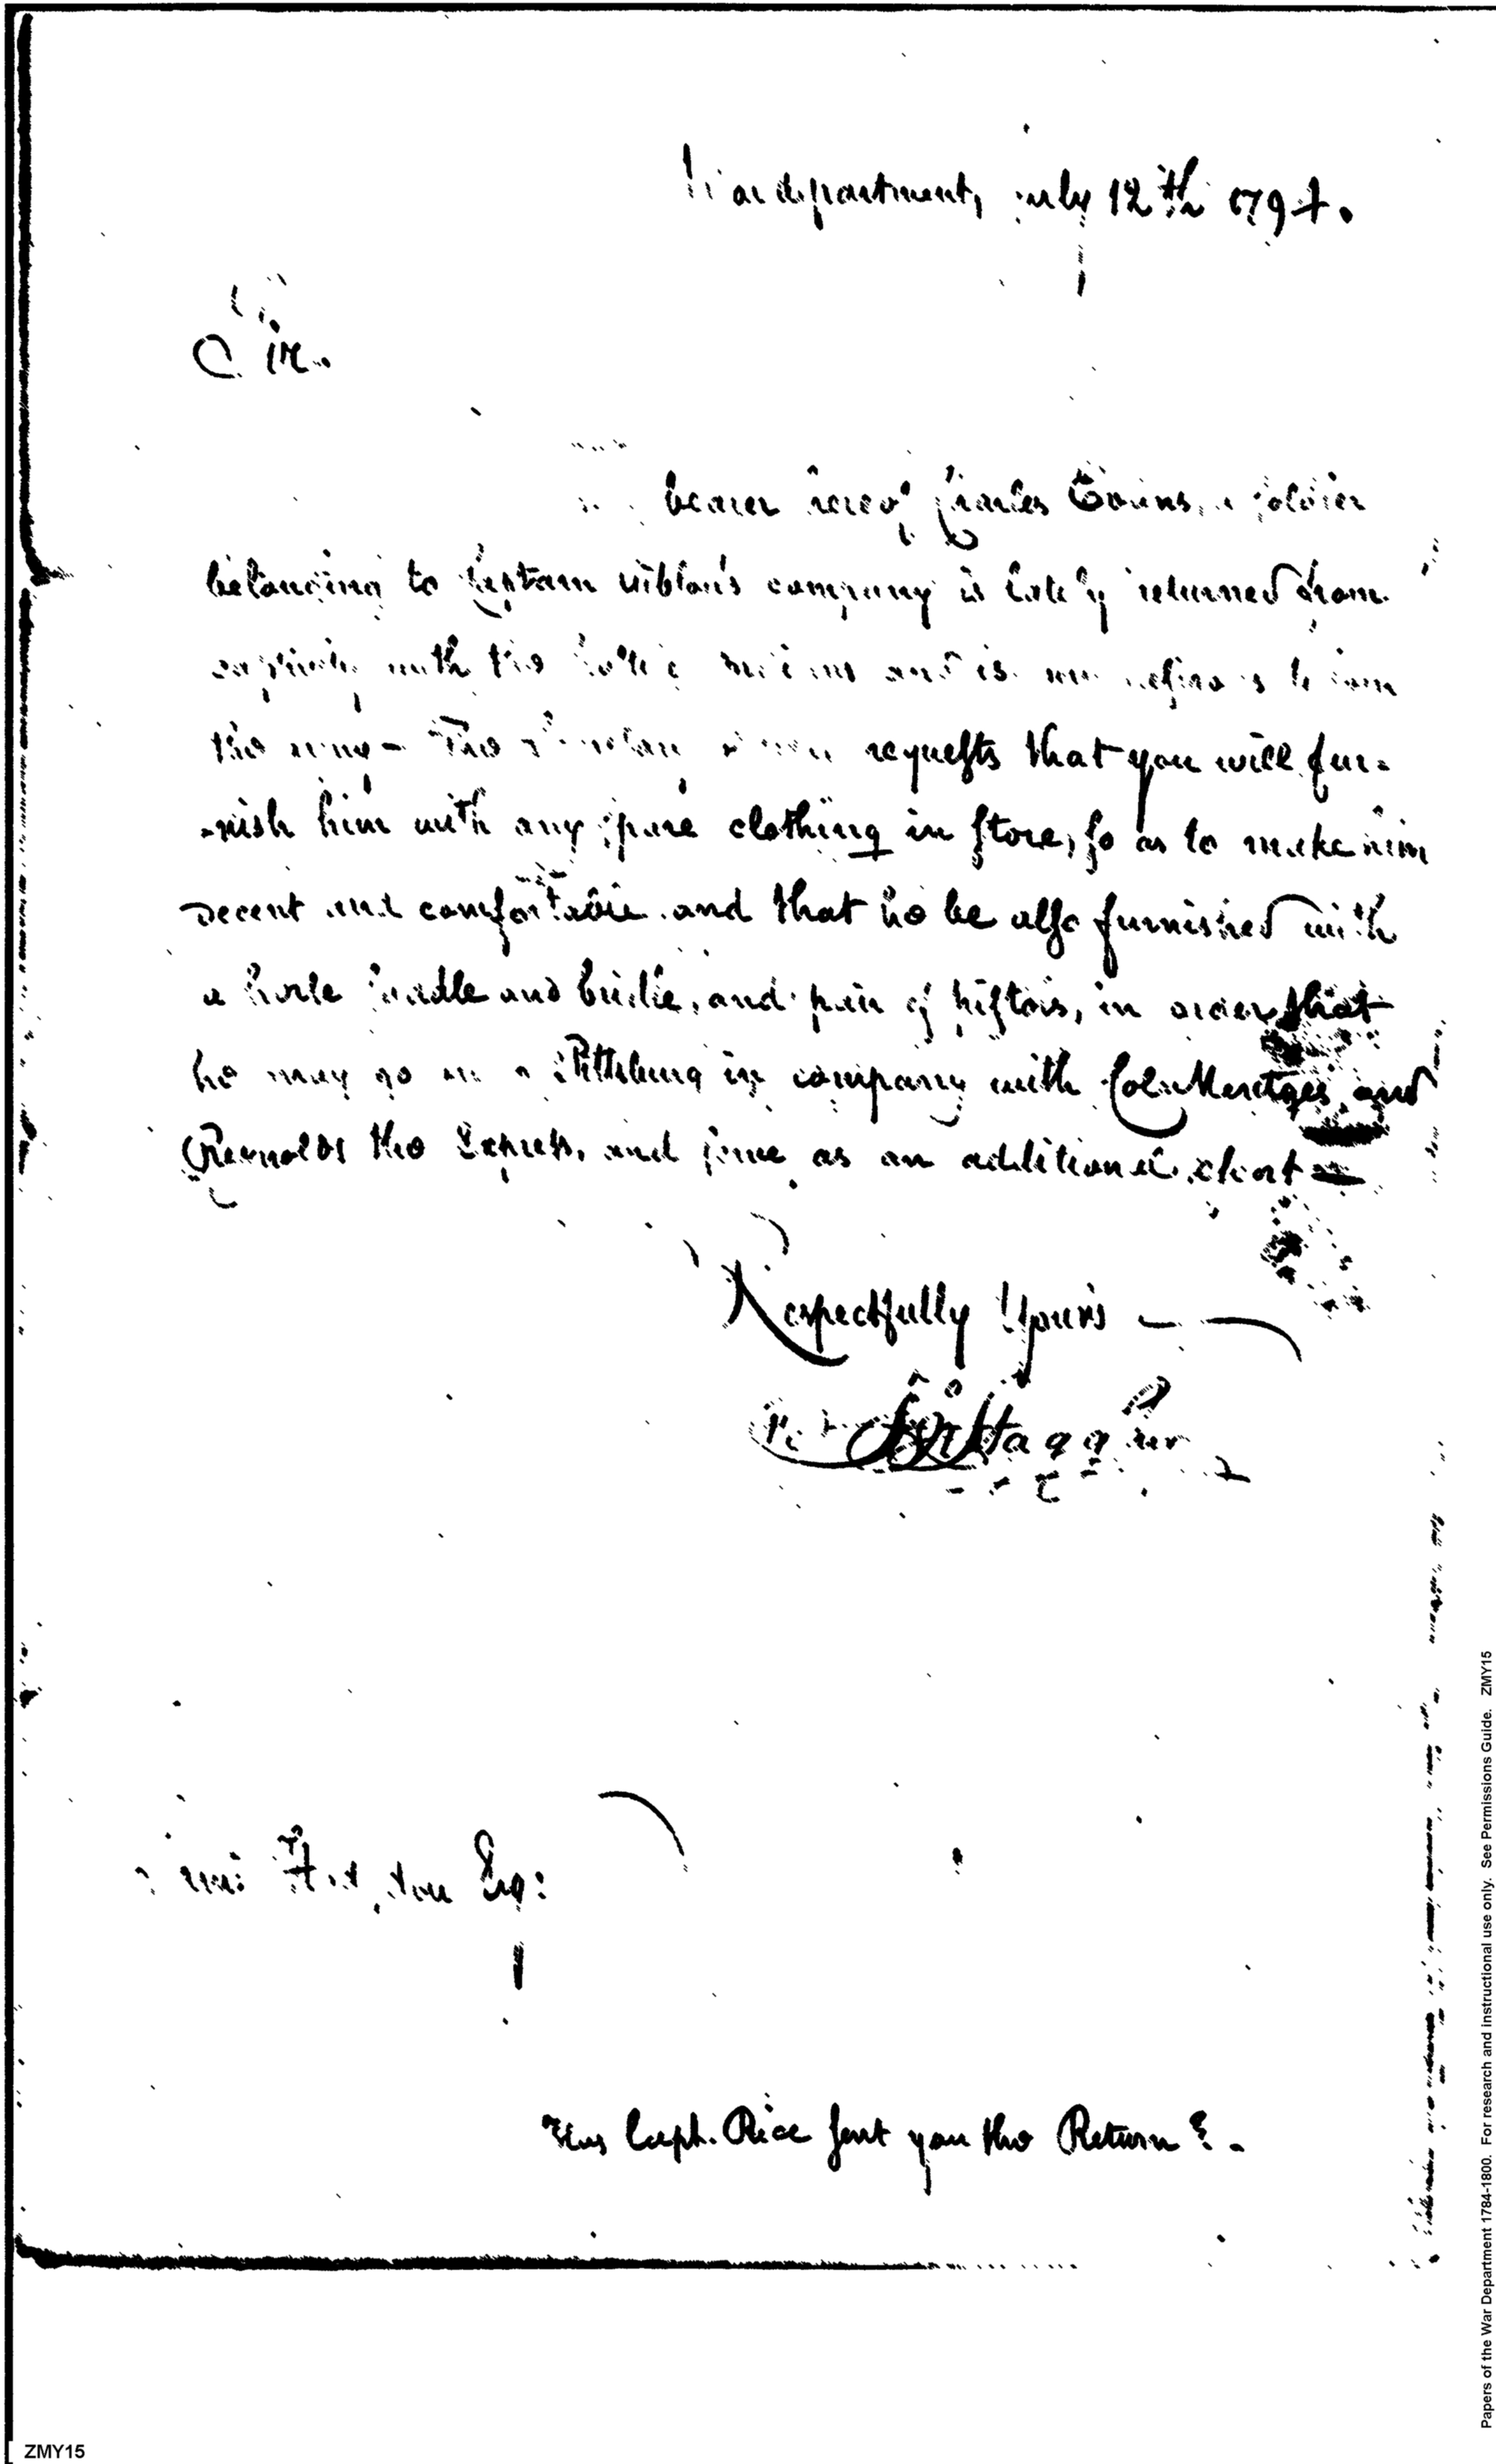 War department, July 12th 1794.
Sir.
bearer hereof Charles a soldier
belonging to Captain company is lately returned from
captivity with the hostile indians and is now desirous to join
the army - The of war requests that you will fur-
-nish him with any spare clothing in store, so as to make him
decent and comfortable and that he be also furnished with
a horse saddle and bridle, and pair of pistols, in order that
he may go on to Pittsburg in company with Col. Mentges and
Reynolds the Express, and serve as an additional escort
Respectfully Yours
Jno Stagg Jur
Saml Hodgdon Esq:
Has Capt. Rice sent you the Return? -
Papers of the War Department 1784-1800. For research and instructional use only. See Permissions Guide. ZMY15
ZMY15